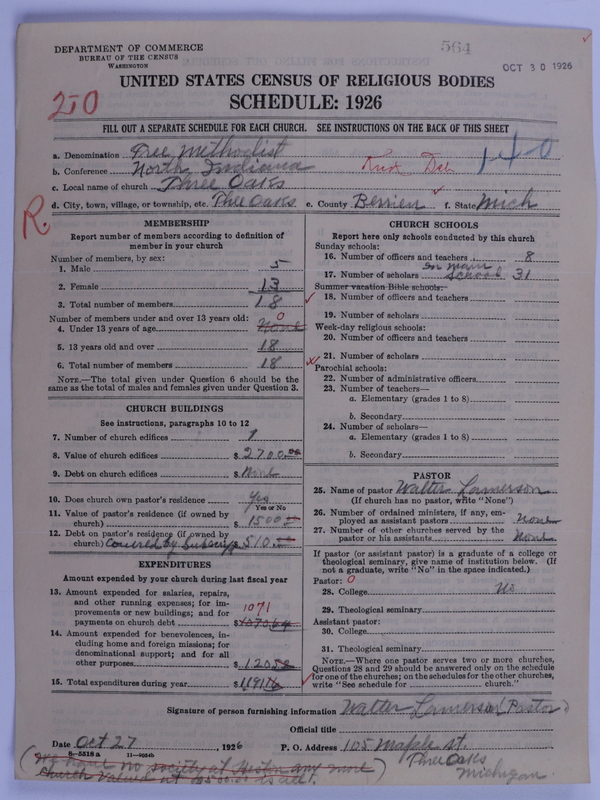 564
DEPARTMENT OF COMMERCE
BUREAU OF THE CENSUS
WASHINGTON
OCT 30 1926
UNITED STATES CENSUS OF RELIGIOUS BODIES
SCHEDULE: 1926
250
FILL OUT A SEPARATE SCHEDULE FOR EACH CHURCH. SEE INSTRUCTIONS ON THE BACK OF THIS SHEET
a. Denomination Free Methodist
b. Conference North Indiana 140
c. Local name of church Three Oaks
d. City, town, village, or township, etc. Three Oaks e. County Berrien f. State Mich
R.
MEMBERSHIP
Report number of members according to definition of
member in your church
Number of members, by sex:
1. Male 5
2. Female 13
3. Total number of members 18
Number of members under and over 13 years old:
4. Under 13 years of age None 0
5. 13 years old and over 18
6. Total number of members 18
NOTE.—The total given under Question 6 should be the
same as the total of males and females given under Question 3.
CHURCH BUILDINGS
See instructions, paragraphs 10 to 12
7. Number of church edifices 1
8. Value of church edifices $2700.00
9. Debt on church edifices $None
10. Does church own pastor's residence Yes
Yes or No
11. Value of pastor's residence (if owned by
church) $1500
12. Debt on pastor's residence (if owned by
church) Covered by Subscrip $510
EXPENDITURES
Amount expended by your church during last fiscal year
13. Amount expended for salaries, repairs,
and other running expenses; for im-
provements or new buildings; and for
payments on church debt 1071 $1070.64
14. Amount expended for benevolences, in-
cluding home and foreign missions; for
denominational support; and for all
other purposes $120
15. Total expenditures during year $1191
CHURCH SCHOOLS
Report here only schools conducted by this church
Sunday schools:
16. Number of officers and teachers 8
17. Number of scholars in main school 31
Summer vacation Bible schools:
18. Number of officers and teachers
19. Number of scholars
Week-day religious schools:
20. Number of officers and teachers
21. Number of scholars
Parochial schools:
22. Number of administrative officers
23. Number of teachers—
a. Elementary (grades 1 to 8)
b. Secondary
24. Number of scholars—
a. Elementary (grades 1 to 8)
b. Secondary
PASTOR
25. Name of pastor Walter Lamerson
(If church has no pastor, write "None")
26. Number of ordained ministers, if any, em-
ployed as assistant pastors None
27. Number of other churches served by the
pastor or his assistants None
If pastor (or assistant pastor) is a graduate of a college or
theological seminary, give name of institution below. (If
not a graduate, write "No" in the space indicated.)
Pastor: 0
28. College No
29. Theological seminary
Assistant pastor:
30. College
31. Theological seminary
NOTE.—Where one pastor serves two or more churches,
Questions 28 and 29 should be answered only on the schedule
for one of the churches; on the schedules for the other churches,
write "See schedule for church."
Signature of person furnishing information Walter Lamerson (Pastor)
Official title
Date Oct 27, 1926 P. O. Address 105 Maple st.
Three Oaks
Michigan
8—5518 a
(We have no society at any more
church valued at